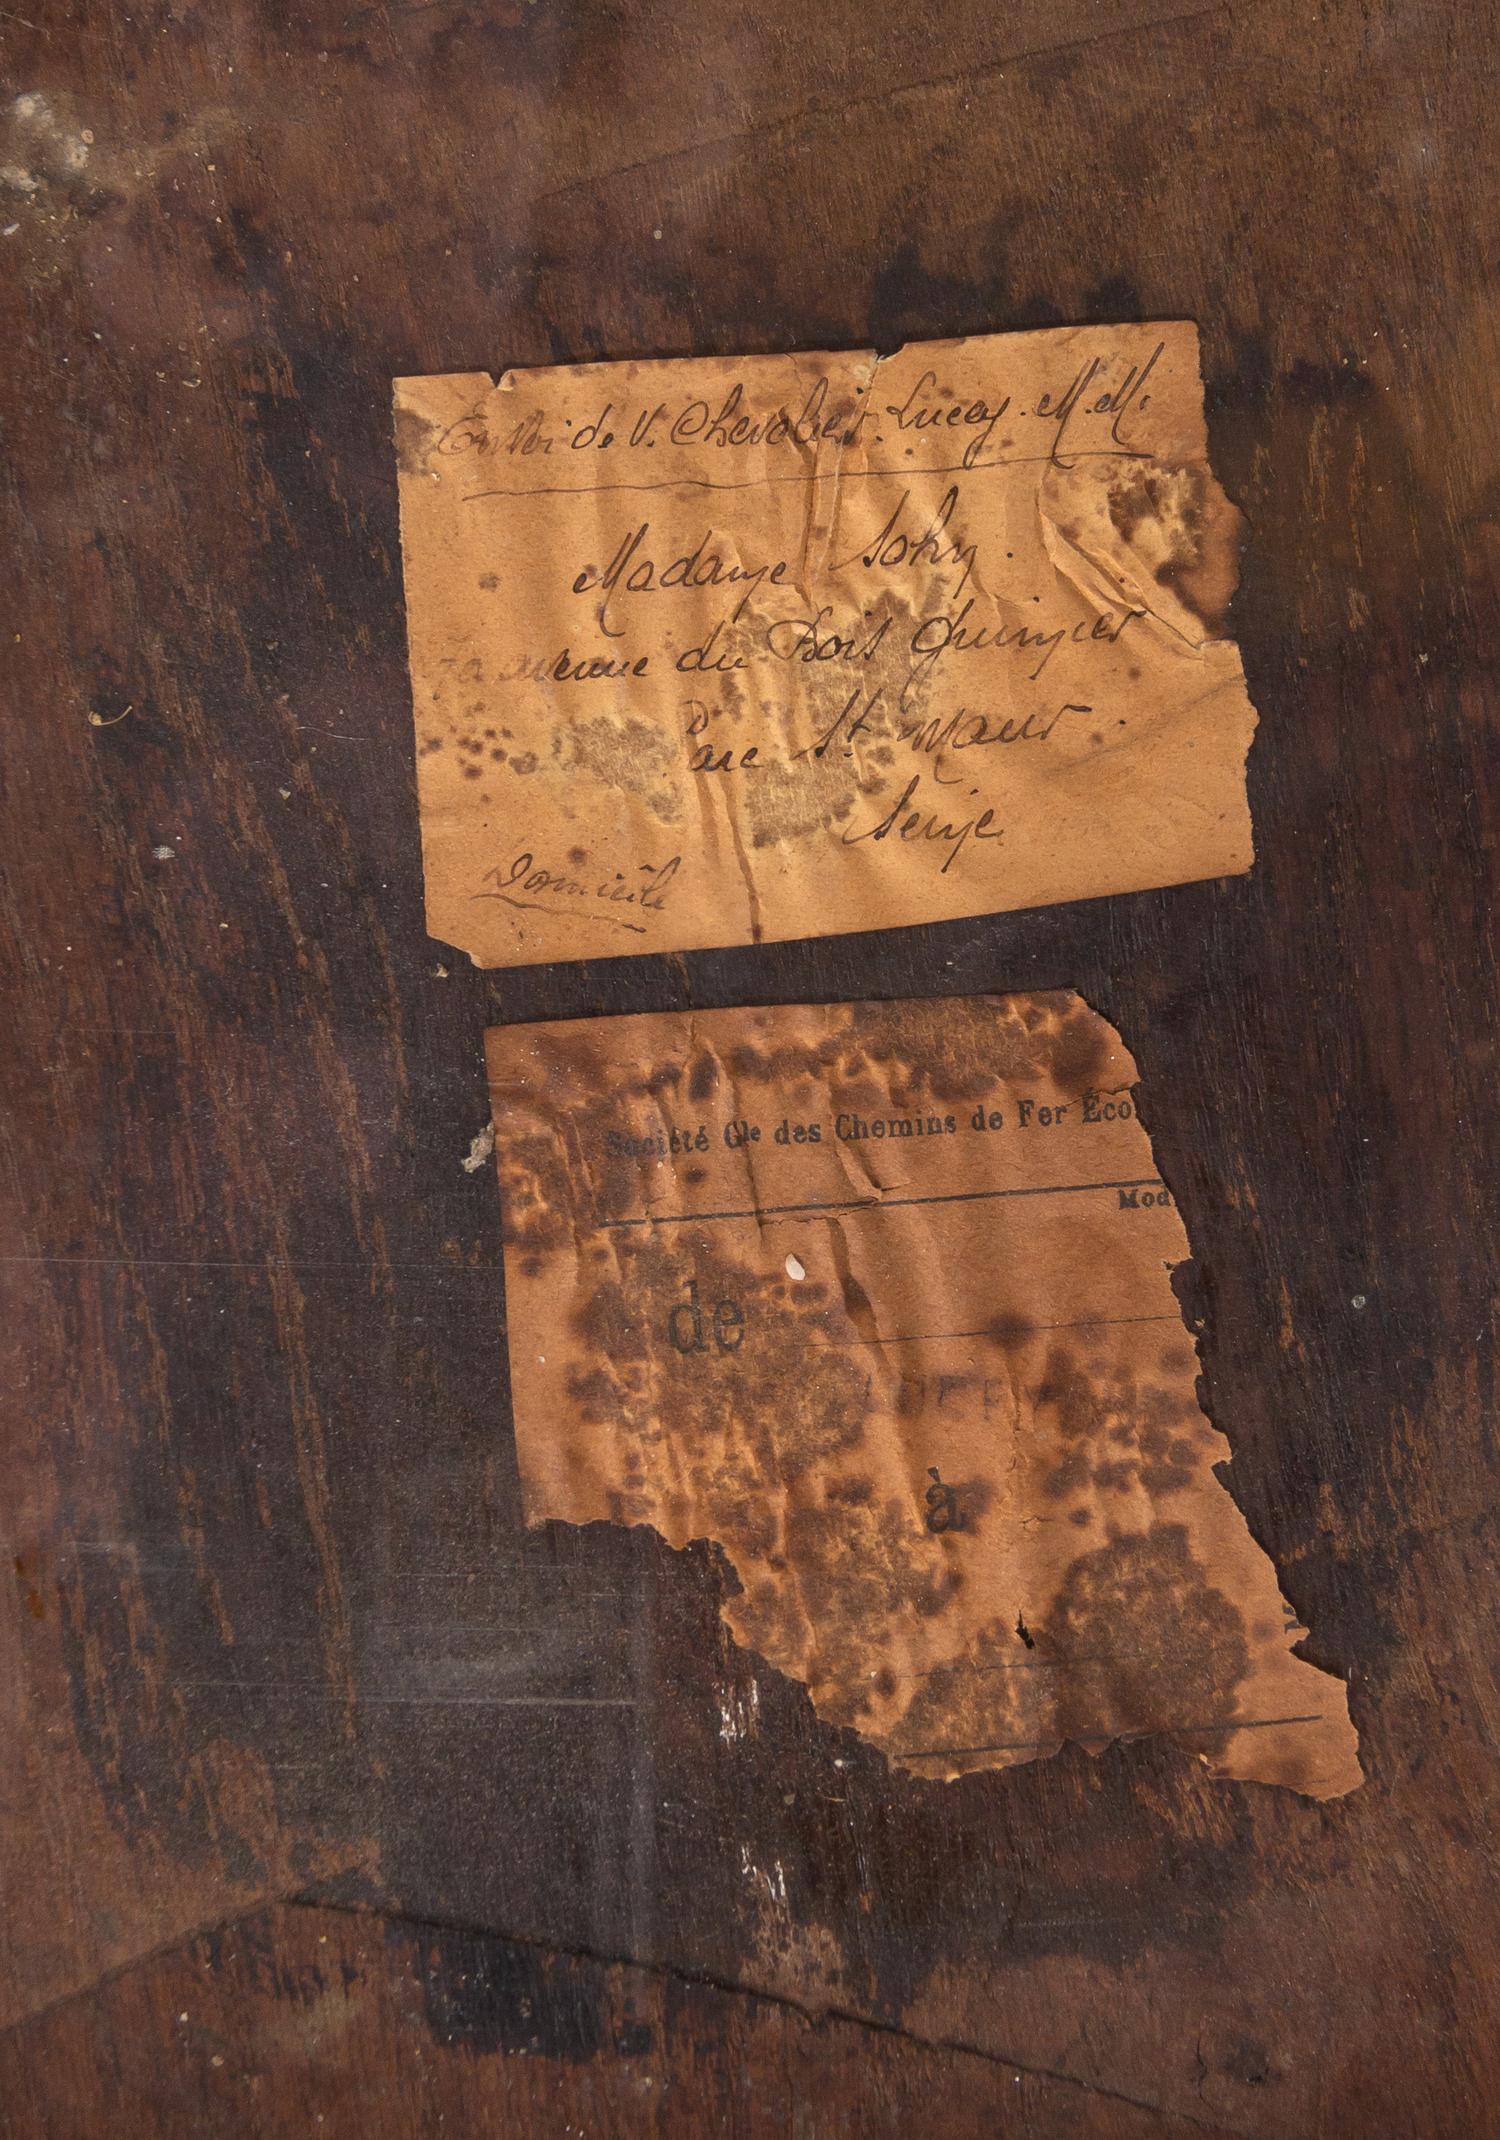 Envoi de V. Chevalier. Lucay. M. M.
Madame Sohy.
70 avenue du Bois Guimier
Parc St Maur
Seine
Domicile
Société Gle des Chemins de Fer Éco
Mod
de
à